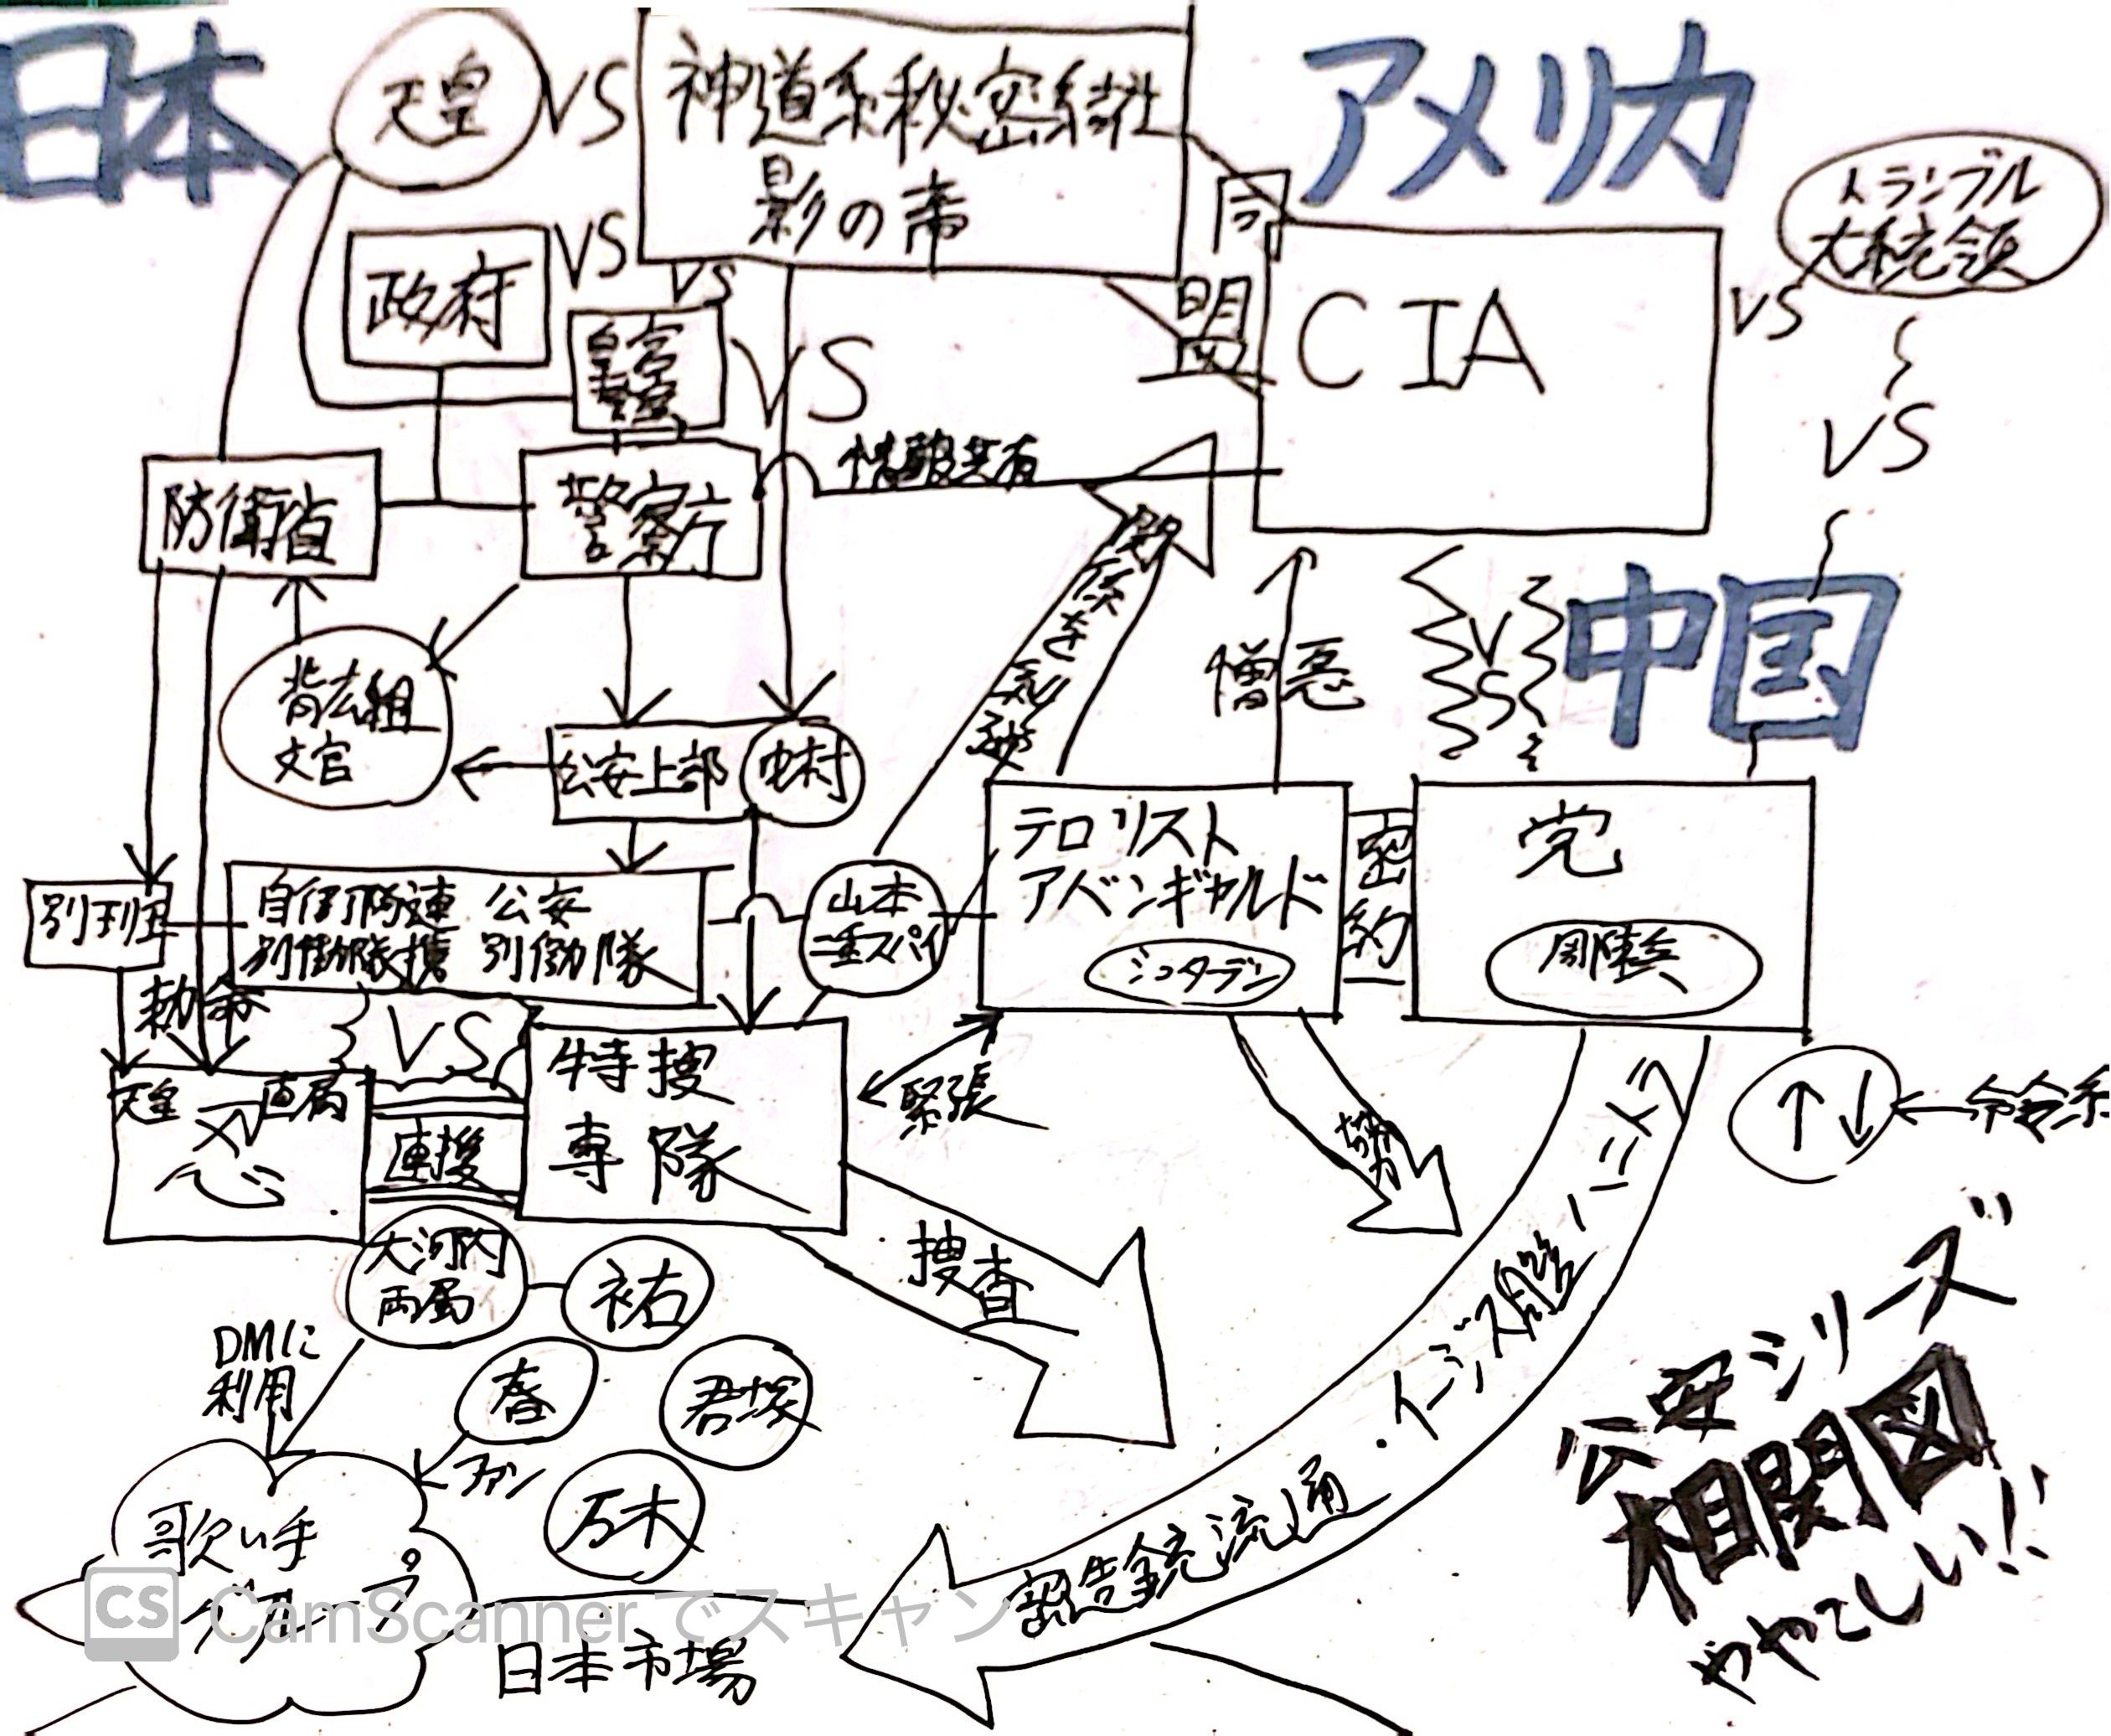 日本
天皇
VS
神道系秘密結社
影の帝
アメリカ
トランブル
大統領
政府
VS
VS
同
盟
CIA
VS
皇宮
VS
VS
防衛省
警察庁
情報共有
中国
憎悪
VS
背広組
文官
公安上部
中村
テロリスト
アバンギャルド
シュターデン
密約
党
別班
自衛隊連 公安
別働隊携 別働隊
山本
二重スパイ
勅命
VS
天皇 直属
忍
連携
特捜
専隊
緊張
↑↓
命令系
大河内
両属
祐
捜査
DMに
利用
春
君塚
ファン
万木
歌い手
グループ
日本市場
密造銃流通・
公安シリーズ
相関図
ややこしい!!
CS CamScannerでスキャン